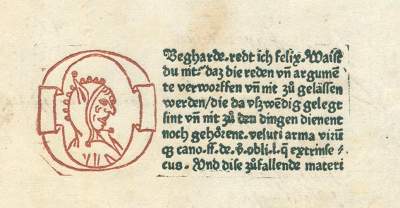 Begharde. redt ich felix. Waist
du nit? daz die reden vn̄ argumē
te verworffen vn̄ nit zů gelåssen
werden/die da vſzwēdig gelegt
sint vn̄ nit zů den dingen dienent
noch gehőrent. veluti arma virūͫ
q̃ cano. ff. de. v̄. obli. l. q̄ extrinse⸗
cus. Und dise zůfallende materi